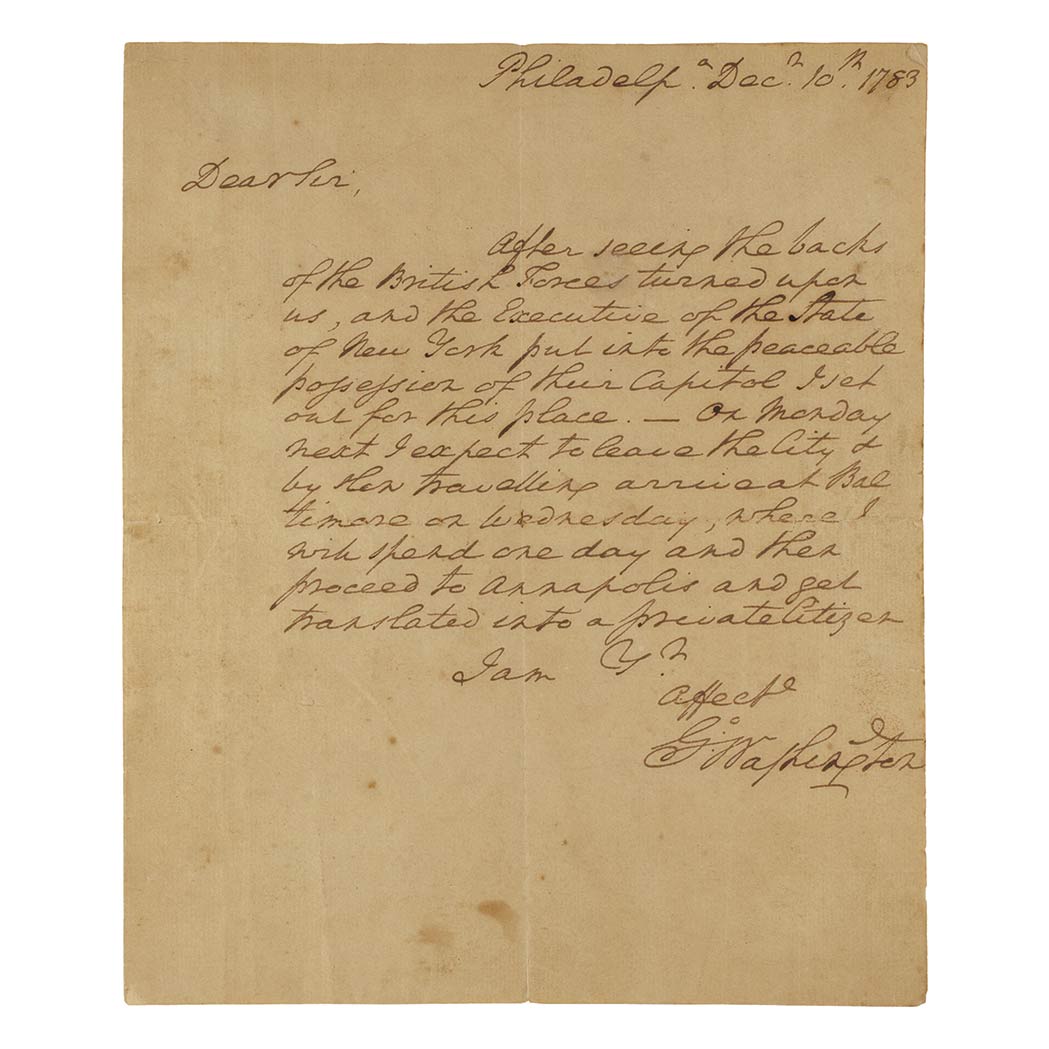 Philadelpᵃ. Decʳ. 10ᵗʰ. 1783
Dear Sir,
After seeing the backs
of the British Forces turned upon
us, and the Executive of the State
of New York put into the peaceable
possession of their Capitol I set
out for this place. — On Monday
next I expect to leave the City &
by slow travelling arrive at Bal
timore on Wednesday, where I
will spend one day and then
proceed to Annapolis and get
translated into a private Citizen
I am Yʳ
Affectᵉ
Gᵒ. Washington